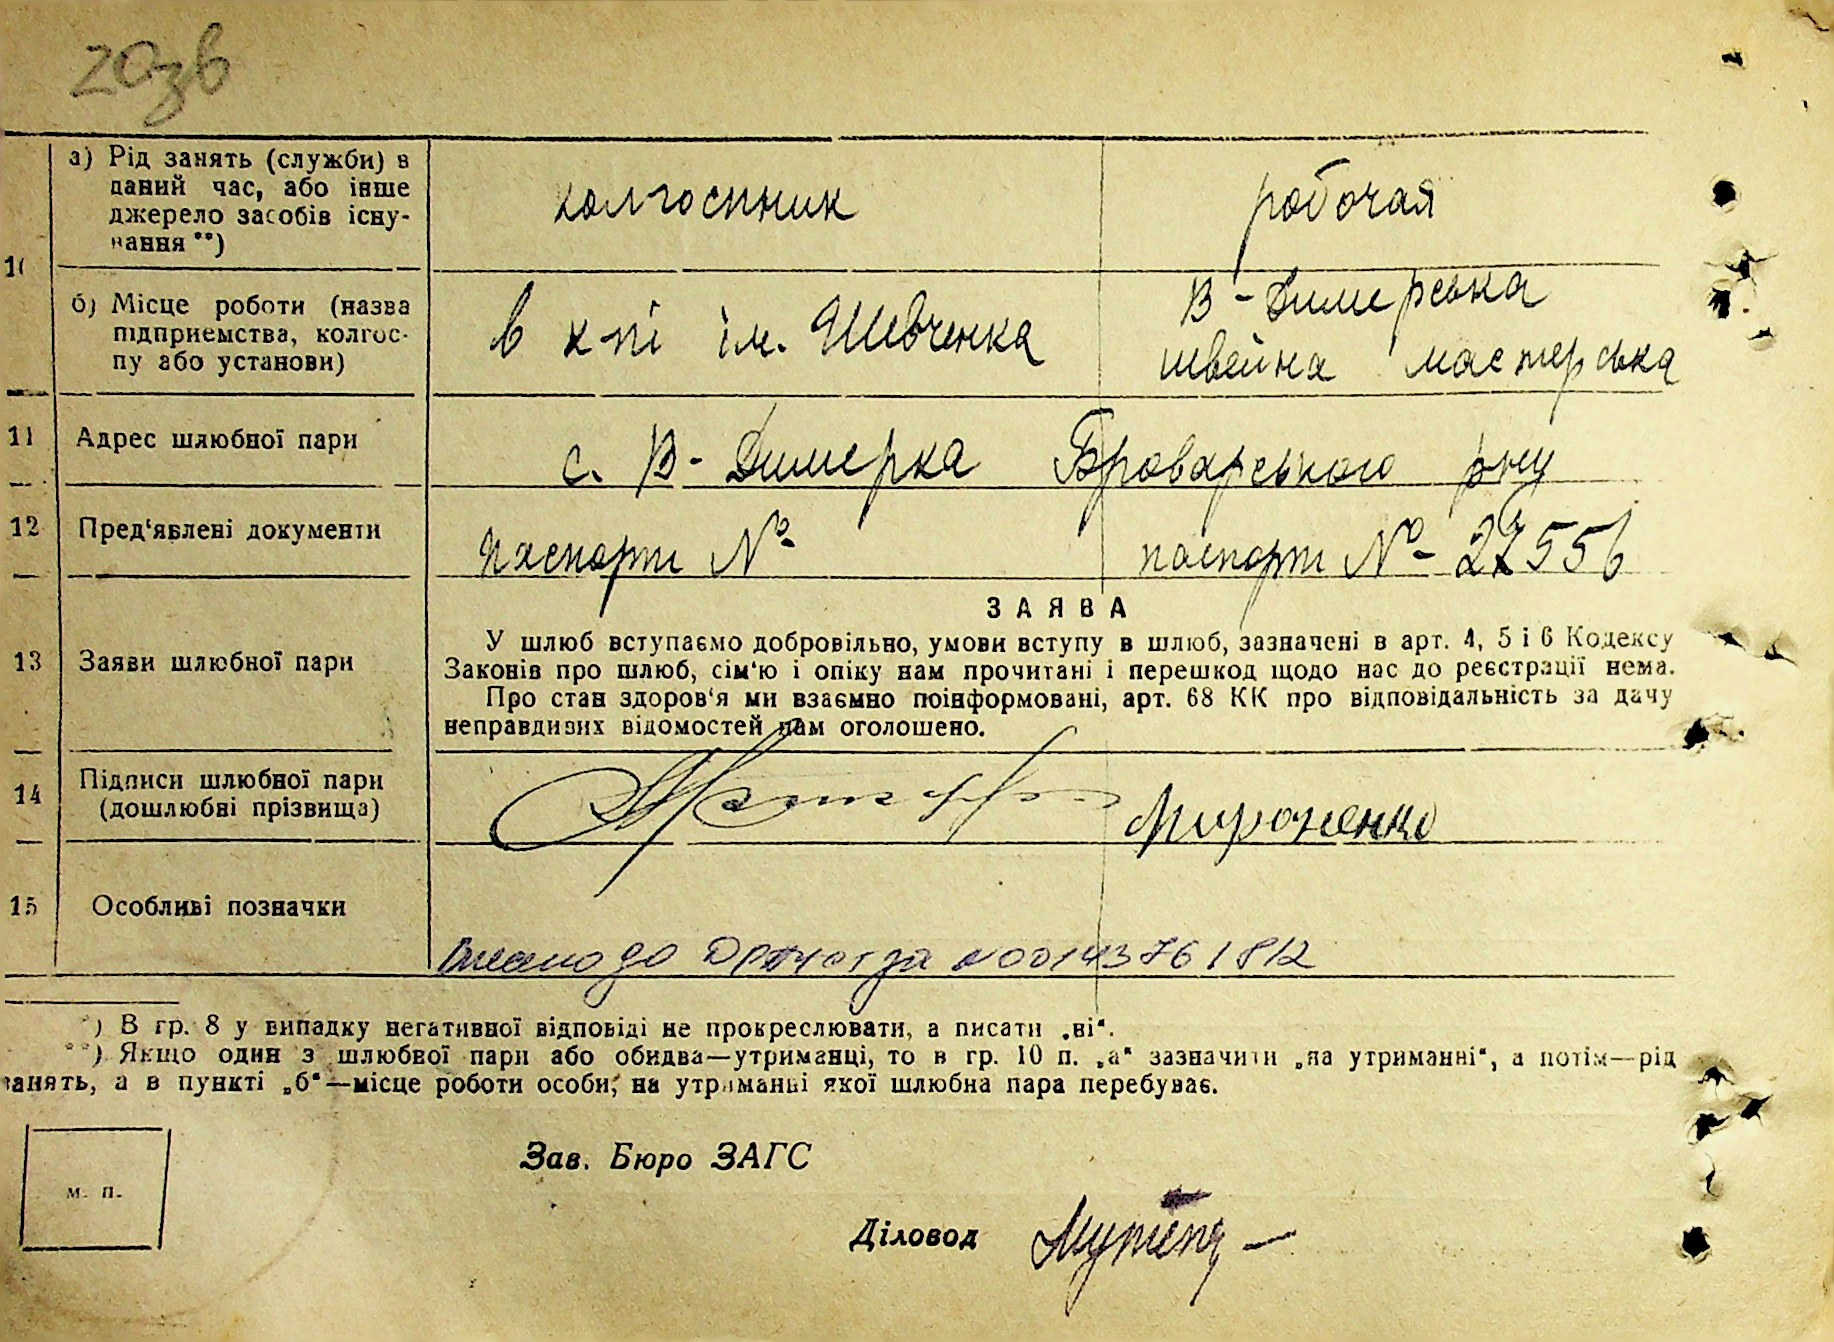 20зв
а) Рід занять (служби) в
даний час, або інше
джерело засобів існу-
вання **)
колгоспник
робочая
10
б) Місце роботи (назва
підприємства, колгос-
пу або установи)
в к-пі ім. Шевченка
В-Димерська
швейна мастерська
11 Адрес шлюбної пари
с. В-Димерка Броварського р-ну
12 Пред'явлені документи
паспорт №
паспорт № 27556
ЗАЯВА
13 Заяви шлюбної пари
У шлюб вступаємо добровільно, умови вступу в шлюб, зазначені в арт. 4, 5 і 6 Кодексу
Законів про шлюб, сім'ю і опіку нам прочитані і перешкод щодо нас до реєстрації нема.
Про стан здоров'я ми взаємно поінформовані, арт. 68 КК про відповідальність за дачу
неправдивих відомостей нам оголошено.
14 Підписи шлюбної пари
(дошлюбні прізвища)
Мироненко
15 Особливі позначки
Внесено до за №00143761812
*) В гр. 8 у випадку негативної відповіді не прокреслювати, а писати „ні“.
**) Якщо один з шлюбної пари або обидва—утриманці, то в гр. 10 п. „а“ зазначити „на утриманні“, а потім—рід
занять, а в пункті „б“—місце роботи особи, на утриманні якої шлюбна пара перебуває.
Зав. Бюро ЗАГС
м. п.
Діловод